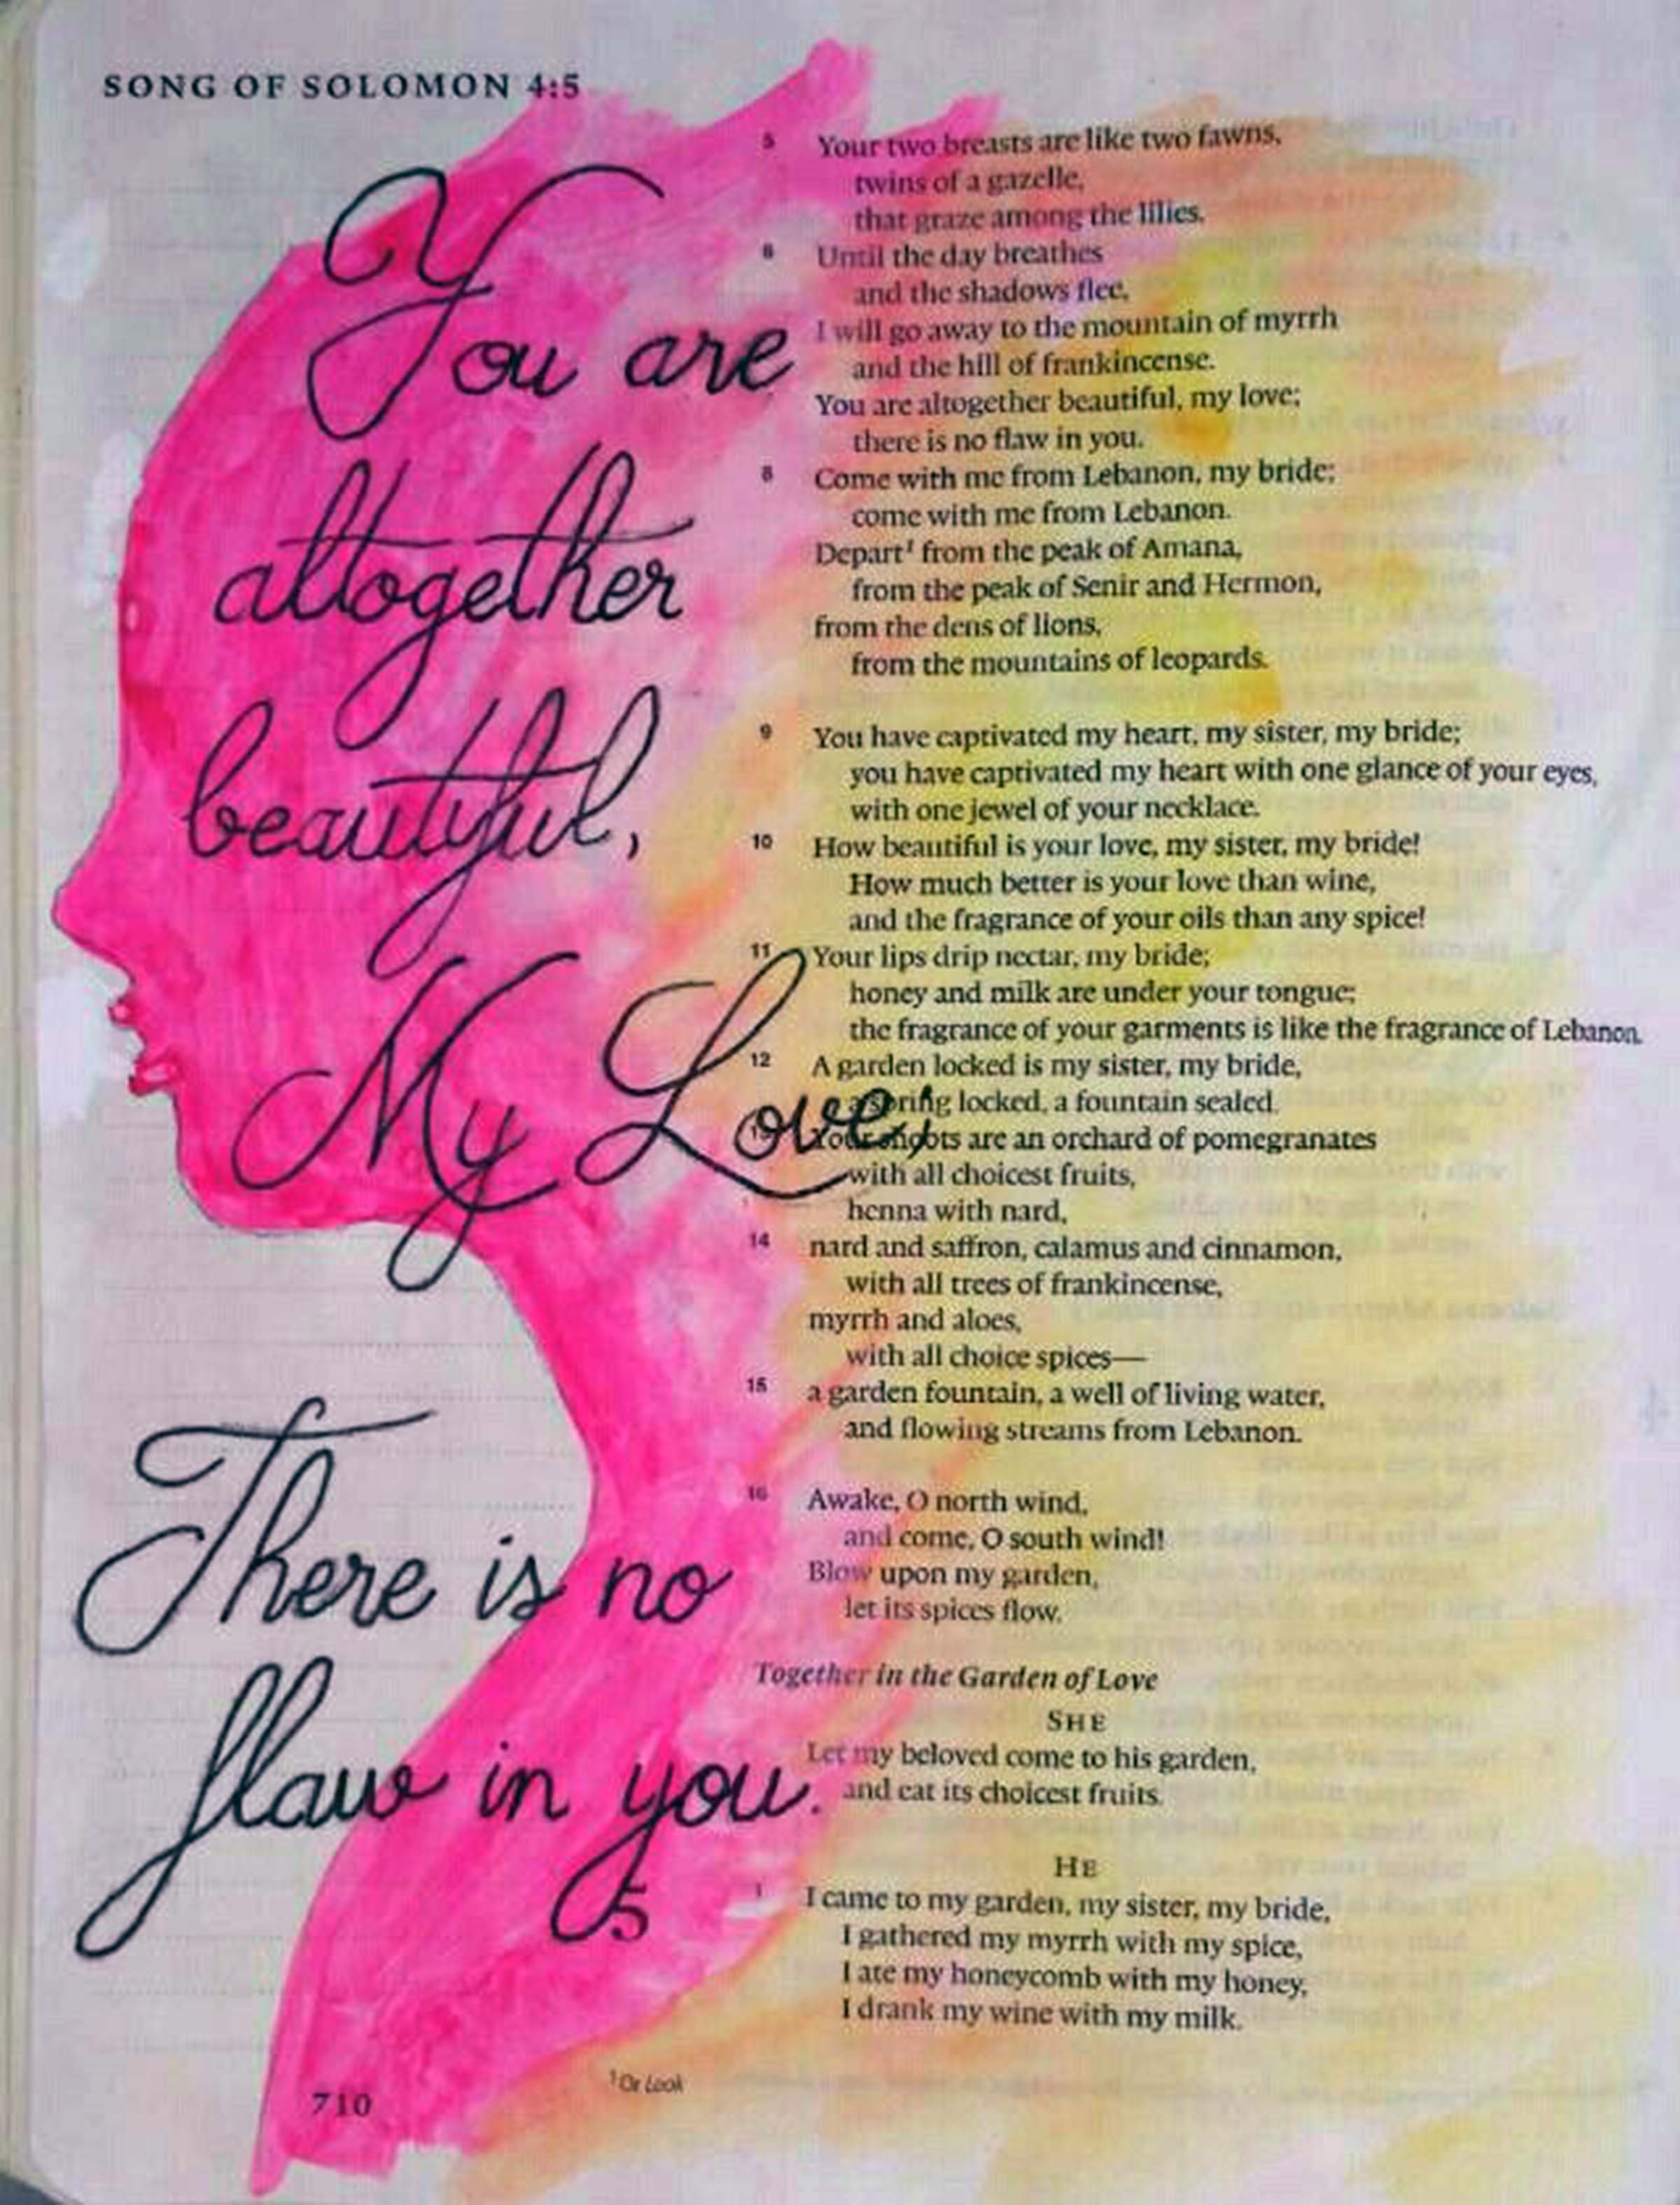 SONG OF SOLOMON 4:5
You are
altogether
beautiful,
My Love,
There is no
flaw in you.
5 Your two breasts are like two fawns,
twins of a gazelle,
that graze among the lilies.
6 Until the day breathes
and the shadows flee,
I will go away to the mountain of myrrh
and the hill of frankincense.
You are altogether beautiful, my love;
there is no flaw in you.
8 Come with me from Lebanon, my bride;
come with me from Lebanon.
Depart¹ from the peak of Amana,
from the peak of Senir and Hermon,
from the dens of lions,
from the mountains of leopards.
9 You have captivated my heart, my sister, my bride;
you have captivated my heart with one glance of your eyes,
with one jewel of your necklace.
10 How beautiful is your love, my sister, my bride!
How much better is your love than wine,
and the fragrance of your oils than any spice!
11 Your lips drip nectar, my bride;
honey and milk are under your tongue;
the fragrance of your garments is like the fragrance of Lebanon.
12 A garden locked is my sister, my bride,
a spring locked, a fountain sealed.
13 Your shoots are an orchard of pomegranates
with all choicest fruits,
henna with nard,
14 nard and saffron, calamus and cinnamon,
with all trees of frankincense,
myrrh and aloes,
with all choice spices—
15 a garden fountain, a well of living water,
and flowing streams from Lebanon.
16 Awake, O north wind,
and come, O south wind!
Blow upon my garden,
let its spices flow.
Together in the Garden of Love
SHE
Let my beloved come to his garden,
and eat its choicest fruits.
HE
5 1 I came to my garden, my sister, my bride,
I gathered my myrrh with my spice,
I ate my honeycomb with my honey,
I drank my wine with my milk.
¹ Or Look
710